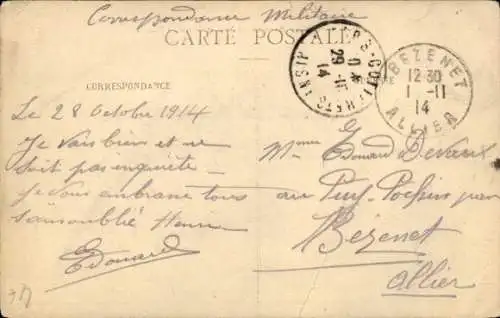 Correspondance Militaire
CARTE POSTALE
CORRESPONDANCE
Le 28 Octobre 1914
Je vais bien et ne
soit pas inquiète
je vous embrasse tous
sans oublié Henri
Edouard
29 -10
14
BEZENET
12 30
1 -11
14
ALLIER
Mme Edouard Devaux
au Puy
Bézenet
Allier